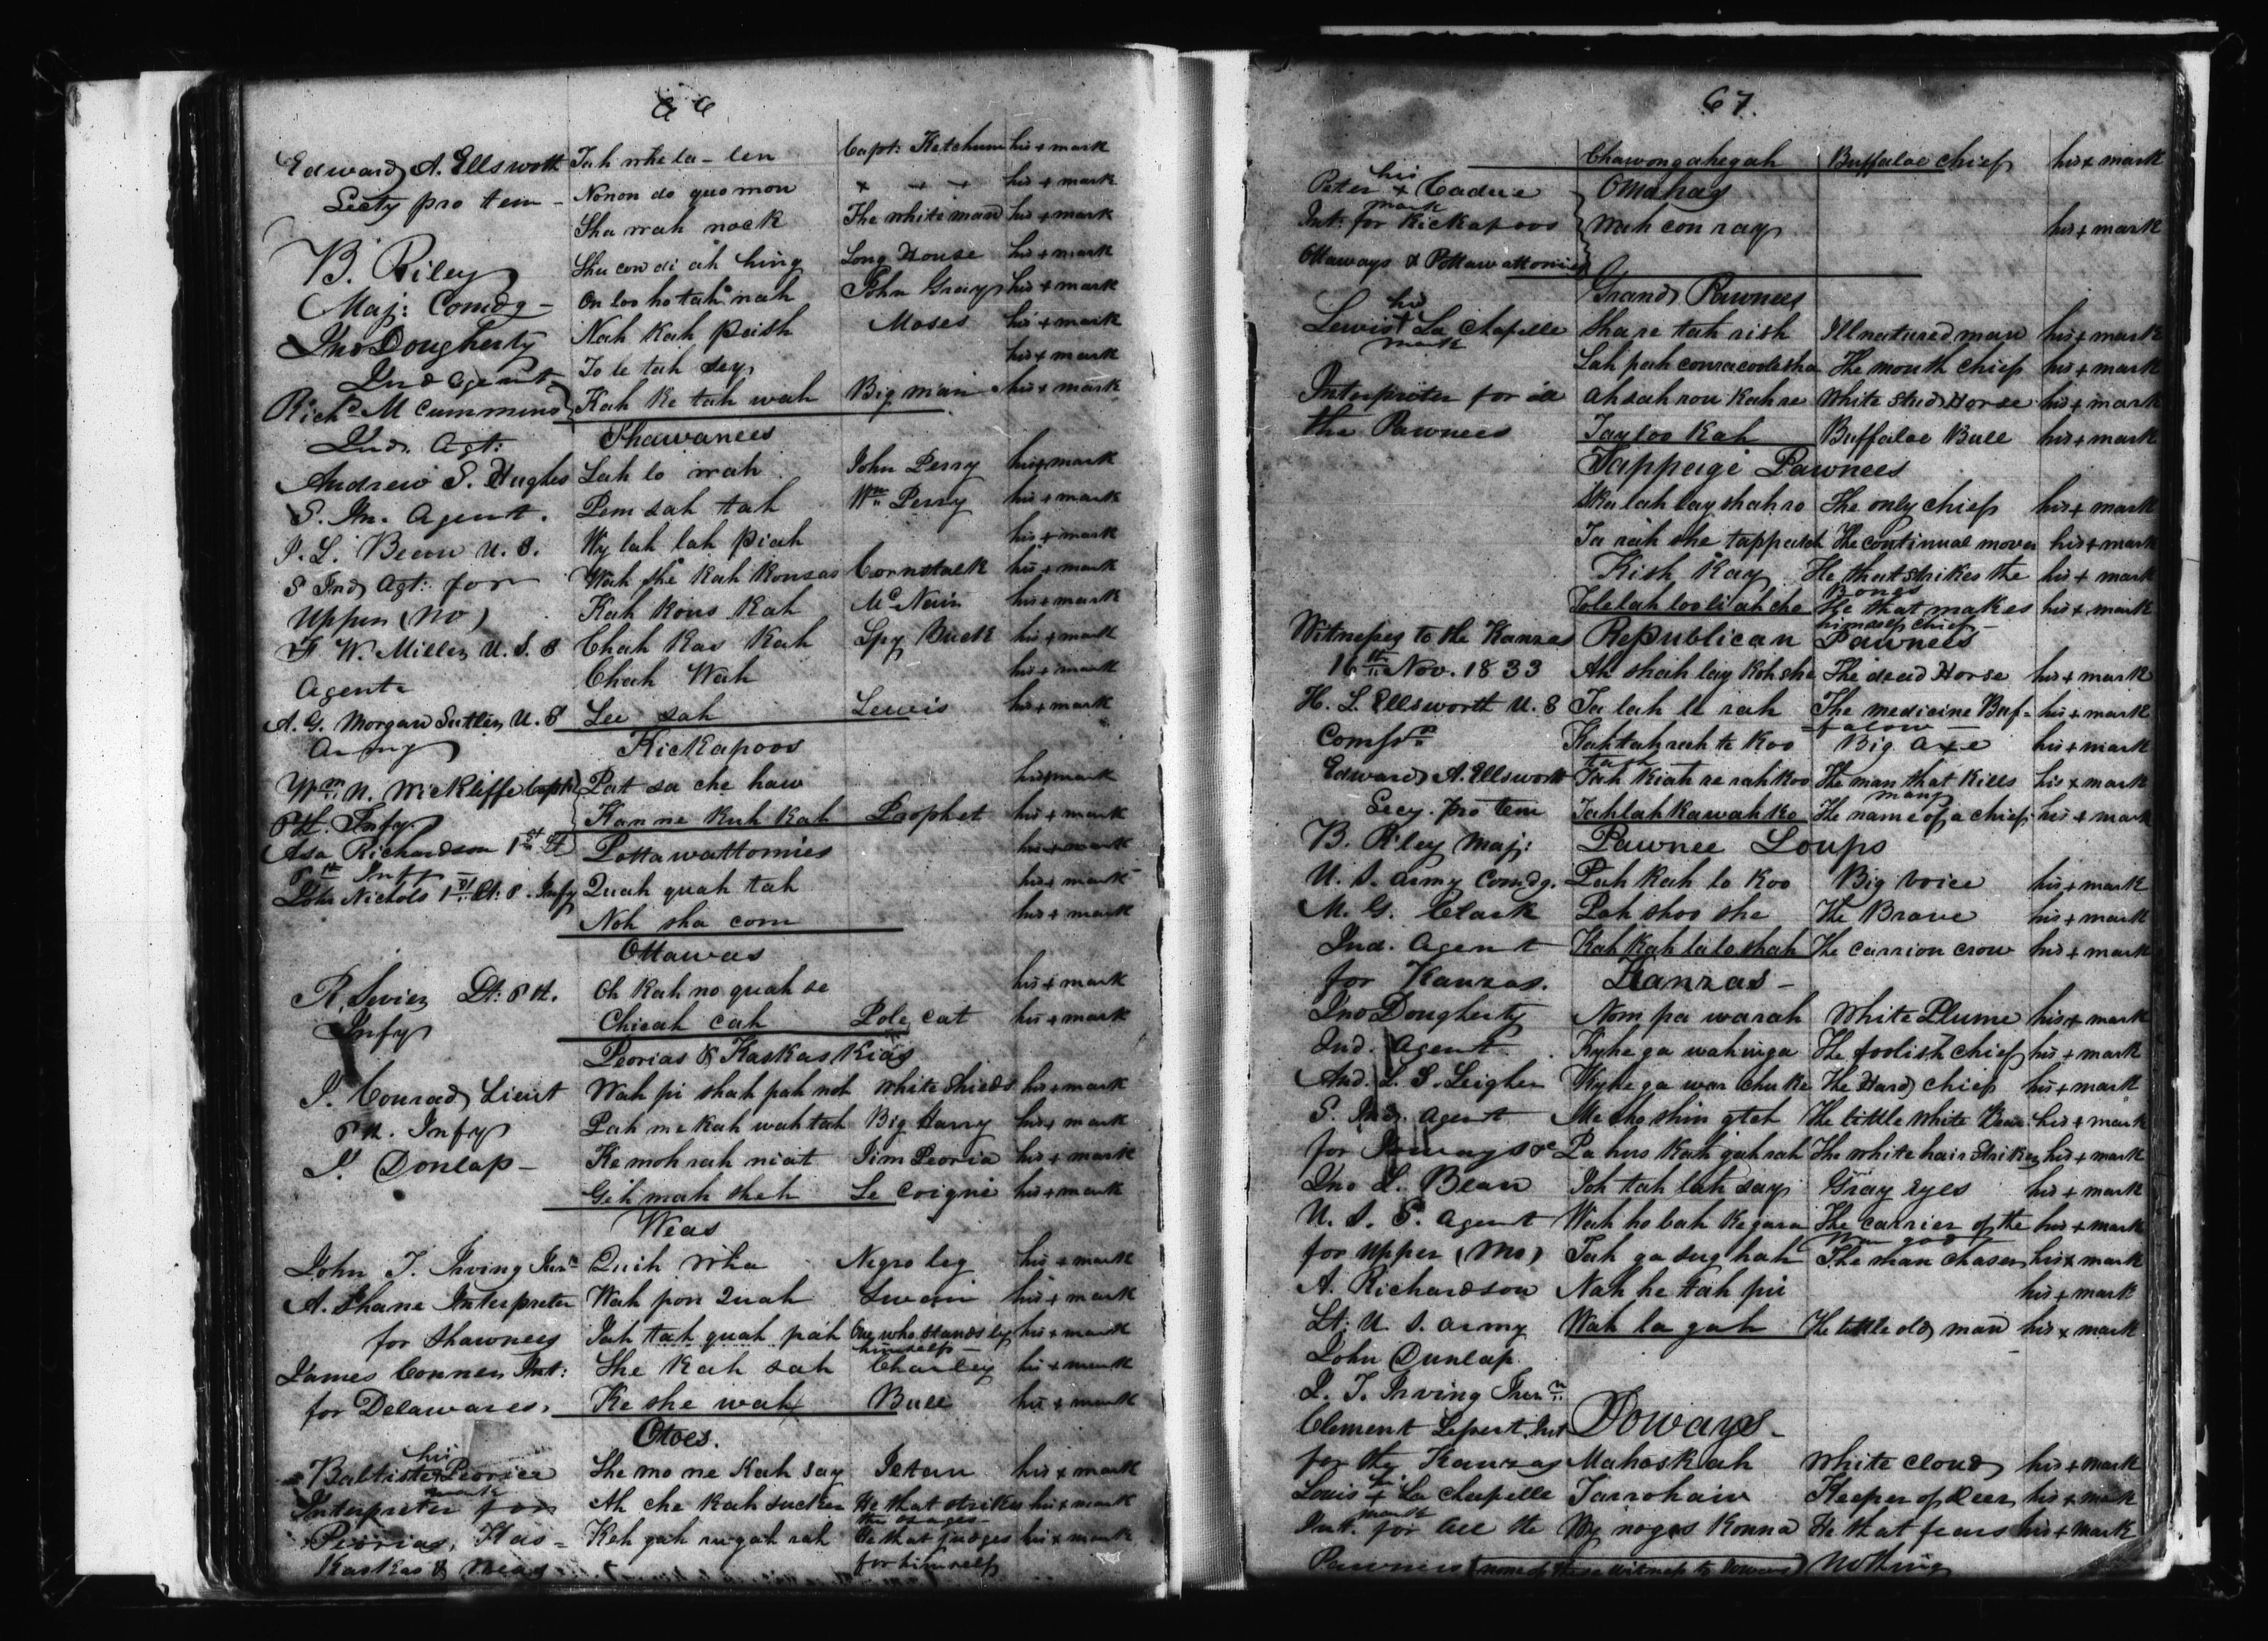 66
Edward A. Ellsworth Tah whe la - len Capt: Ketchum his + mark
Secty pro tem - Nonon do quomon " " " his + mark
Sha wah nock The white man his + mark
B. Riley Shu con di ah hing Long House his + mark
Maj: Comdg - On loo ho tah nah John Gray his + mark
Jno Dougherty Nah Kah peith Moses his + mark
Ind Agent To le tah sey his + mark
Richd M Cummins Kah Ke tah wah Big man his + mark
Ind. Agt: Shawanees
Andrew S. Hughes Lah lo wah John Perry his + mark
S. In. Agent. Pem sah tah Wm Perry his + mark
J. L. Bean U. S. Wy lah lah piah his + mark
S Ind Agt: for Wah she kah Konsas Cornstalk his + mark
Upper (Mo) Kah kous kah McNair his + mark
F W. Miller U. S. S Chah Kas Kah Spy Buck his + mark
Agent Chah Wah his + mark
A. G. Morgan Sutler, U. S Lee sah Lewis his + mark
Army Kickapoos
Wm. N. Wickliffe Capt Pat sa che haw his + mark
6th. Infy Kan ne kuh kah Prophet his + mark
Asa Richardson 1st Lt Pottawattomies his + mark
6th Infy
John Nichols 1st Lt: 6. Infy Quah quah tah his + mark
Noh sha com his + mark
Ottawas
R. Sevier Lt: 6 th. Oh Kah no quah se his + mark
Infy Chicah cah Pole cat his + mark
Peorias & Kaskaskias
J. Conrad, Lieut Wah pi shah pah noh White Shield his + mark
6 th. Infy Pah me kah wah tah Big Harry his + mark
J. Donlap - Ke moh rah niat Jim Peoria his + mark
Geh mah sheh Le Coigne his + mark
Weas
John T. Irving Junr Quih wha Negro leg his + mark
A. Shane Interpreter Wah pon Quah Swan his + mark
for Shawnees Jah tah quah pah One who stands by his + mark
himself -
James Conner Int: She Kah sah Charley his + mark
for Delawares. Ke she wah Bull his + mark
Otoes.
his
Baltiste + Peoria She mo ne Kah say Jetan his + mark
mark
Interpreter for Ah che kah sucker He that strikes his + mark
the osages -
Peorias, Kas = Keh gah rugah rah He that judges his + mark
Kaskas & Weas for himself
67.
Chawongahegah Buffaloe chief his + mark
his
Peter + Cadue Omahas
mark
Int: for Kickapoos Wah con ray his + mark
Ottaways & Pottawattomies
Grand Pawnees
his
Lewis + La Chapelle Sha re tah rish Ill natured man his + mark
mark
Lah pah conracoolesha The mouth chief his + mark
Interpreter for all Ah sah rou kah re White Stud Horse his + mark
the Pawnees Tay loo Kah Buffaloe Bull his + mark
Tappage Pawnees
Ska lah lay shah ro The only chief his + mark
Ta rah she tappash The continual mover his + mark
Kish Kay He that strikes the his + mark
Bones
Tolelahlooliahche He that makes his + mark
himself chief -
Witnesses to the Kanzas Republican Pawnees
16th Nov. 1833 Ah shah lay Koh sho The dead Horse his + mark
H. L. Ellsworth U. S Ta lah le rah The medicine Buf- his + mark
faloe -
Comsr. Kah tah rah te Koo Big Axe his + mark
Edward A. Ellsworth Tah Kiah re rah koo The man that kills his + mark
many
Secy. pro tem Tah lah kawah ko The name of a chief his + mark
B. Riley Maj: Pawnee Loups
U. S. Army Comdg. Pah Kah lo Koo Big Voice his + mark
M. G. Clark Pah shoo she The Brave his + mark
Ind. Agent Kah Kah la le shah The carrion crow his + mark
for Kanzas. Kanzas -
Jno Dougherty Nom pa warah White Plume his + mark
Ind. Agent Kyhe ga wah inga The foolish chief his + mark
And. L. S. Leigher Kyhe ga war chu ke The Hard chief his + mark
S. Ind. Agent Me sho shin gteh The little White Bear his + mark
for Ioways &c Pa hus kah gah rah The white hair Striker his + mark
Jno L. Bean Ish tah lah say Gray eyes his + mark
U. S. S. Agent Wah ho bah Ke gara The carrier of the his + mark
War god
for Upper (Mo) Tah ga sug hah The man chaser his + mark
A. Richardson Nah he tah pu his + mark
Lt: U S. Army Wah la gah The little old man his + mark
John Dunlap.
J. T. Irving Junr
Clement Lepert, Int Ioways -
for the Kanzas Mahoskah White cloud his + mark
his
Louis + La Chapelle Tarrohaw Keeper of Deer his + mark
mark
Int. for all the Wy noges Konna He that fears his + mark
Pawnees (none of these witness to Ioways) Nothing